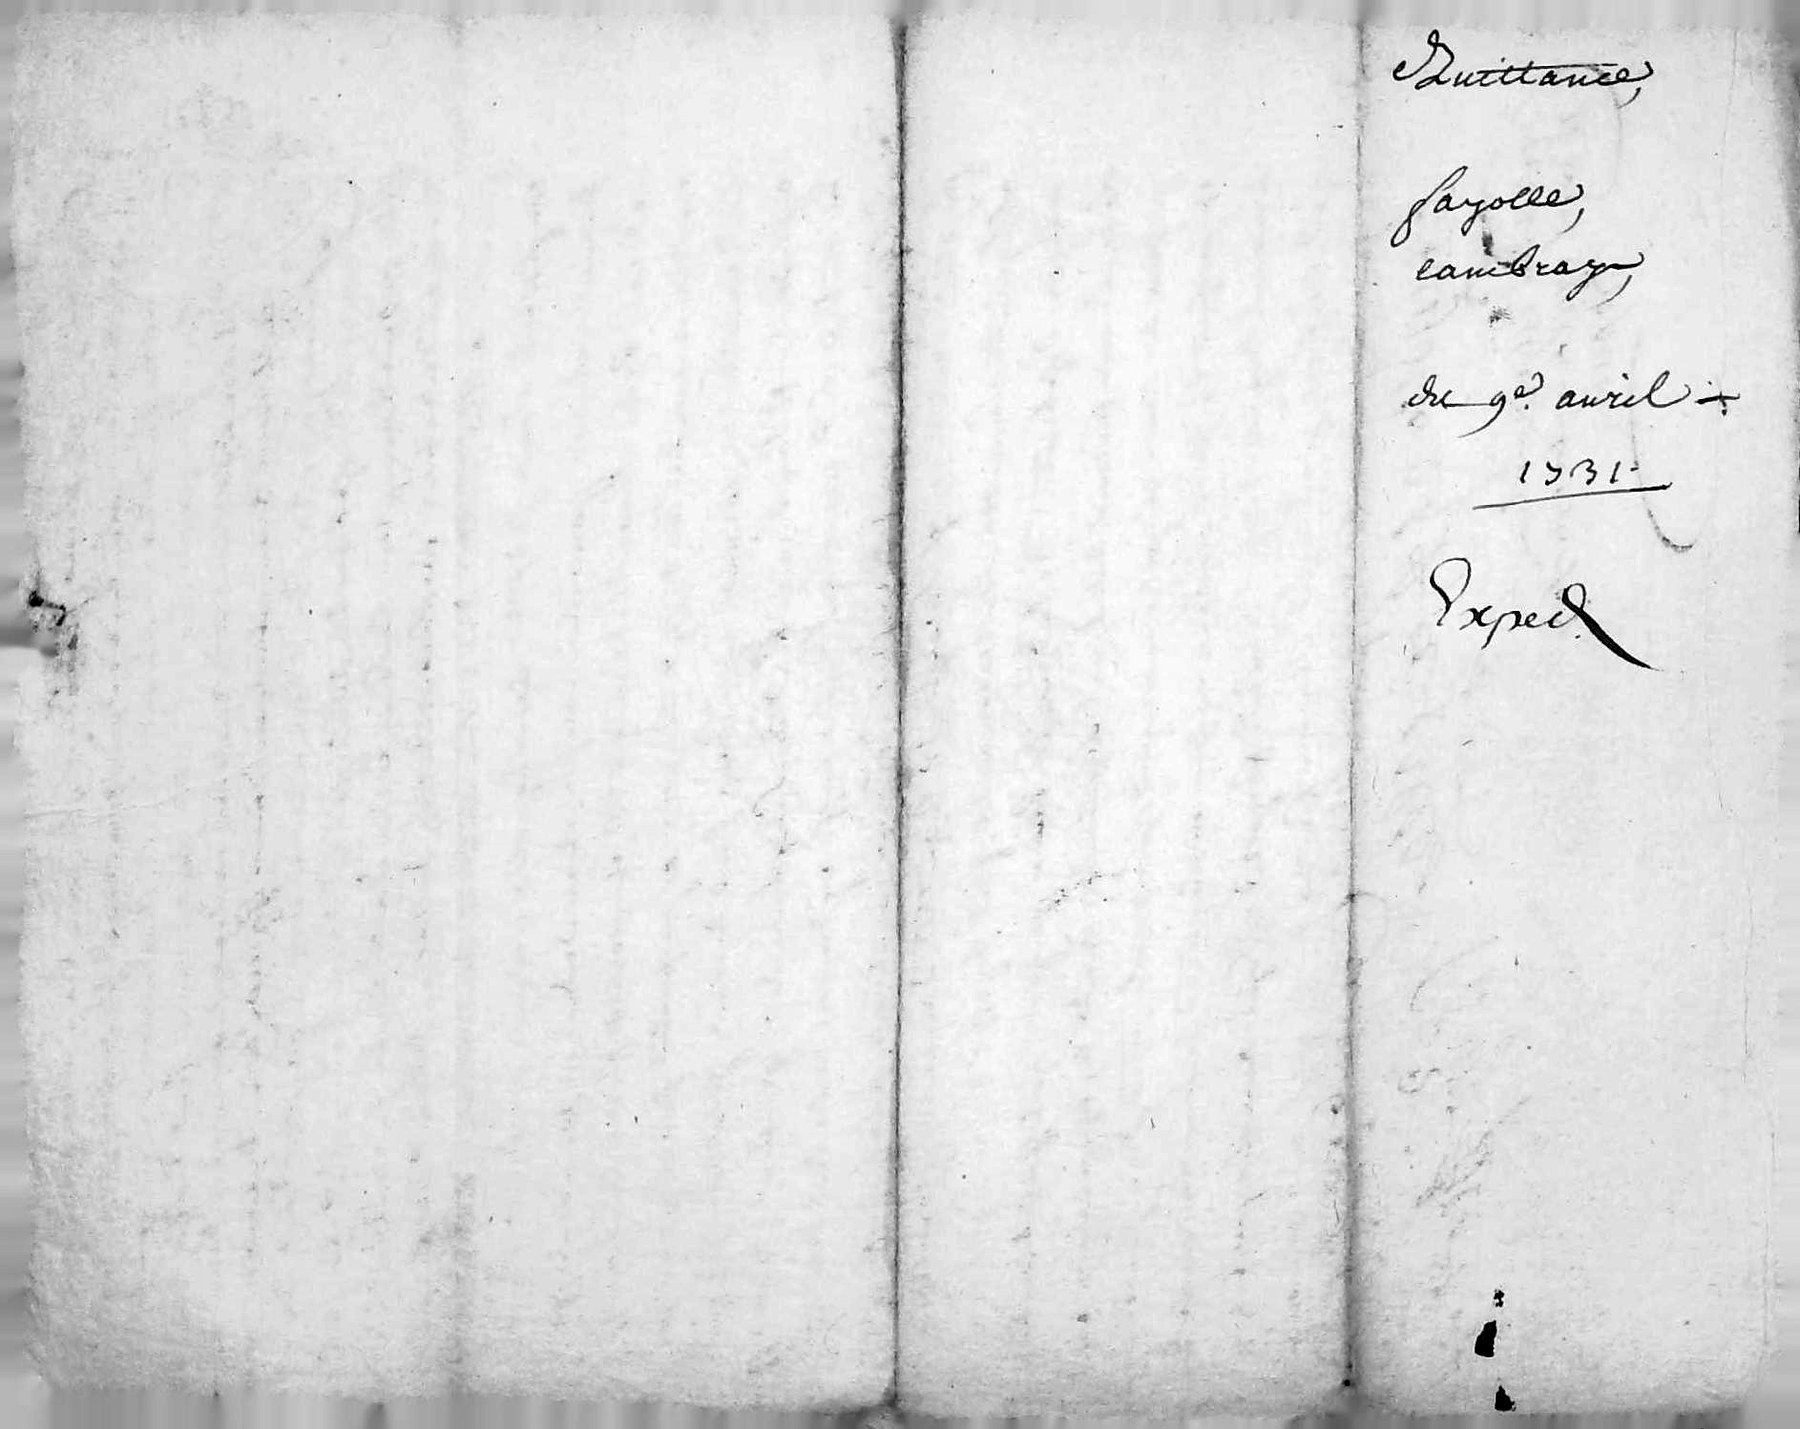 Quittance,
fayolle,
cambray,
du 9e. auril
1731
Exped